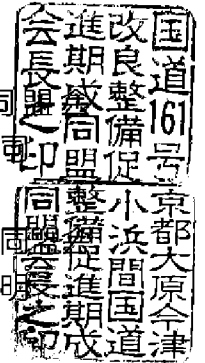 国道161号
改良整備促
進期成同盟
会長之印
京都大原今津
小浜間国道
整備促進期成
同盟会長之印